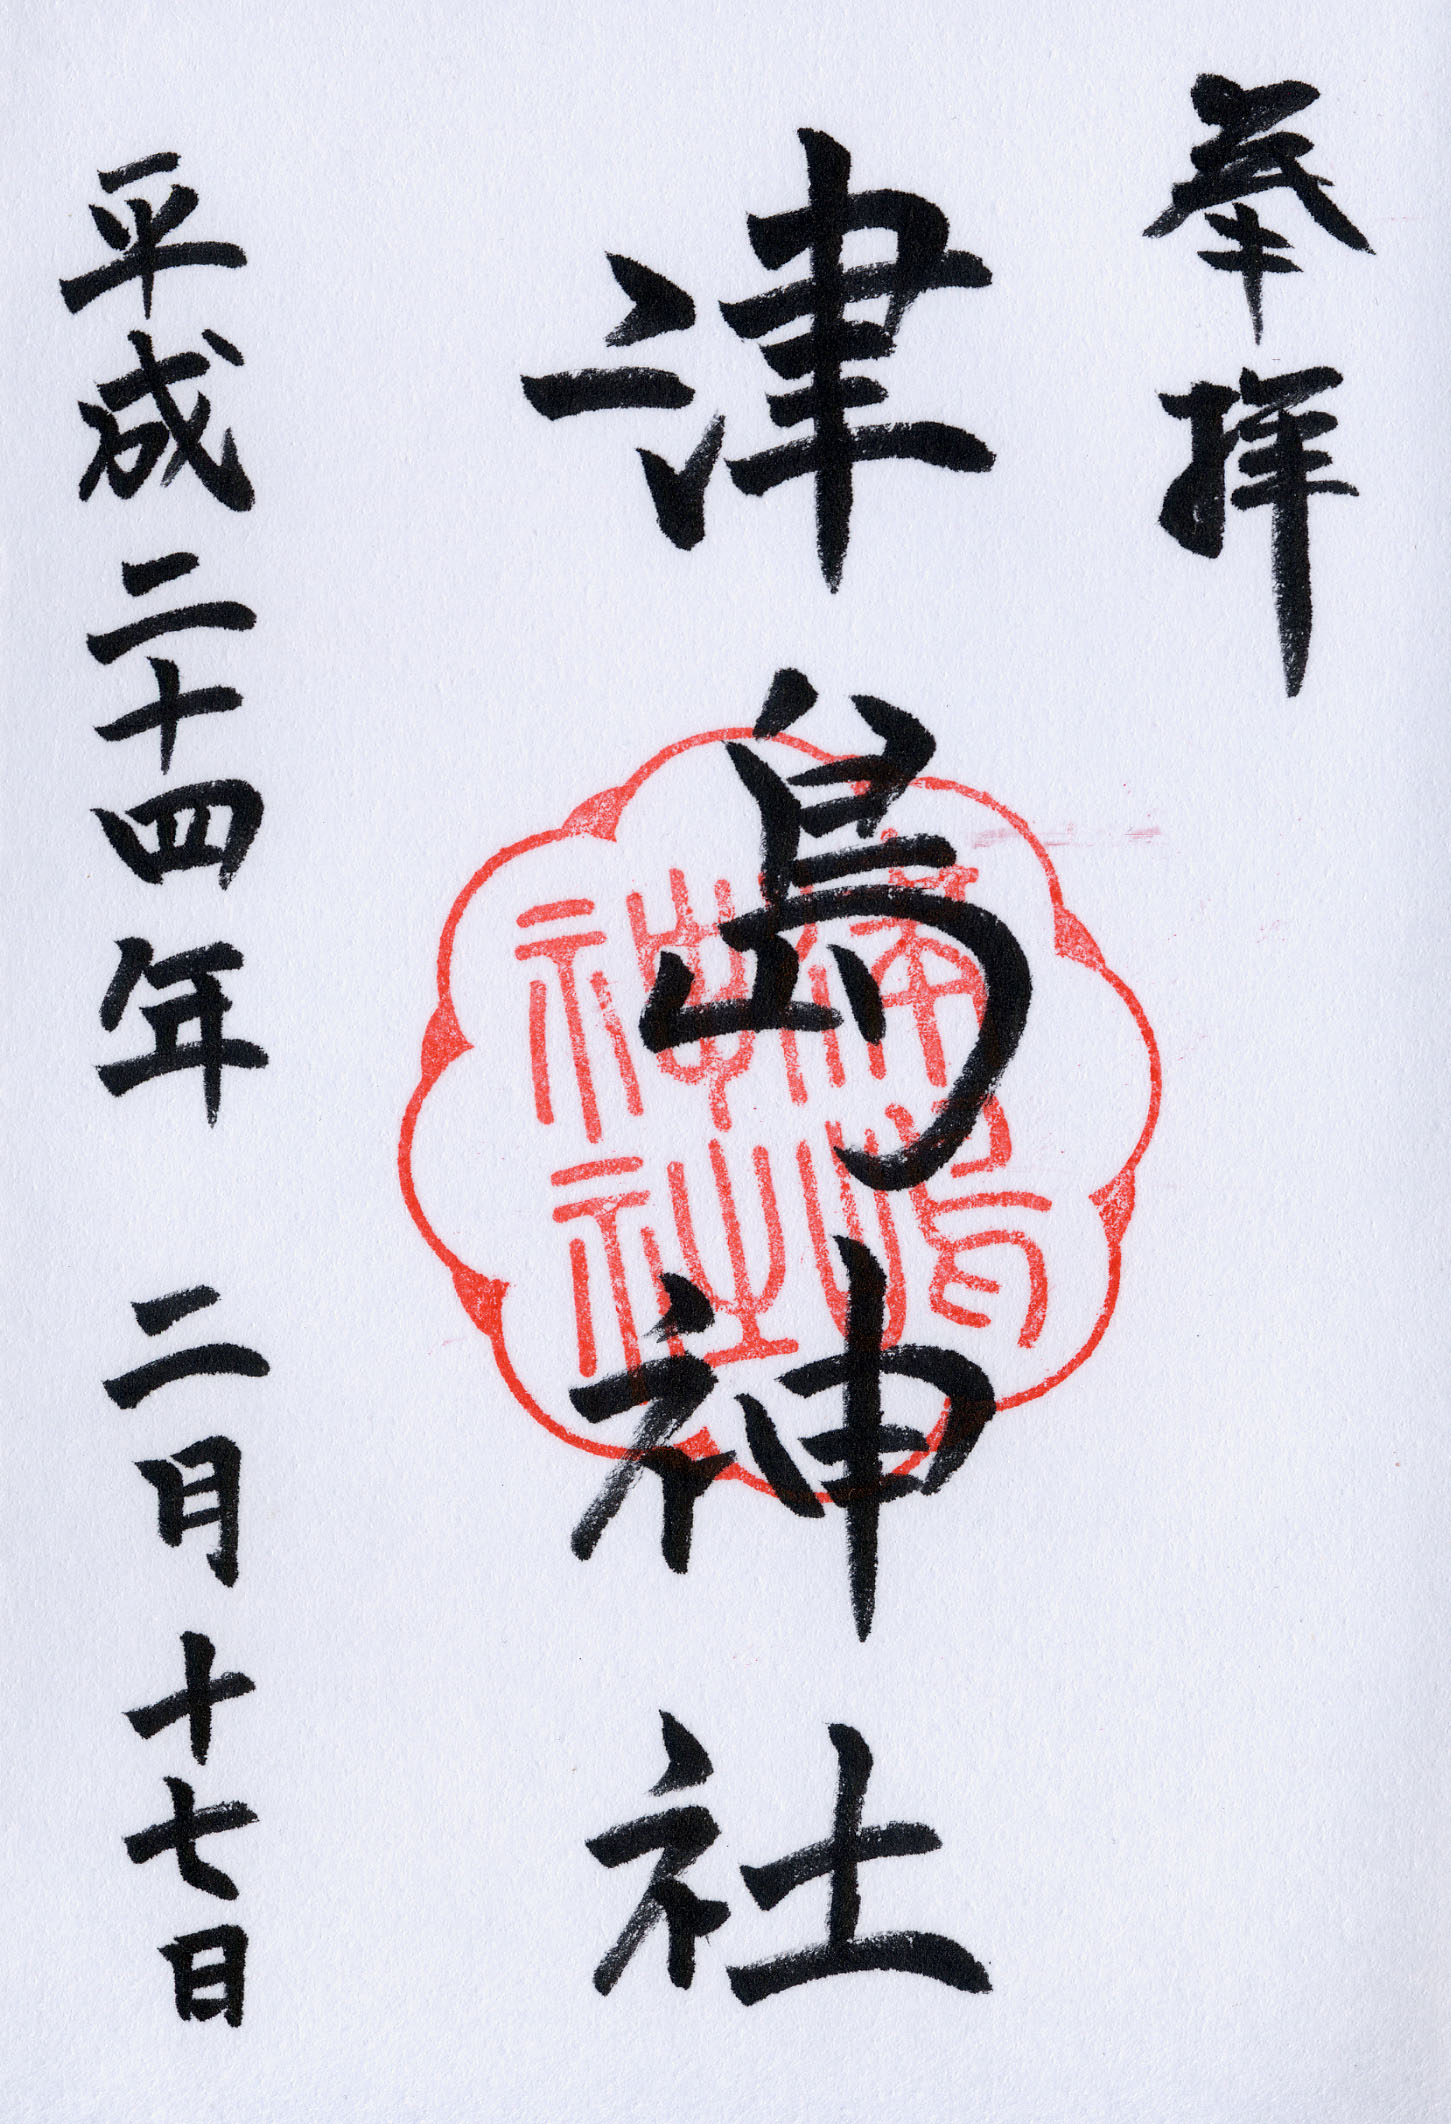 奉拝
津島神社
平成二十四年 二月十七日
津島神社